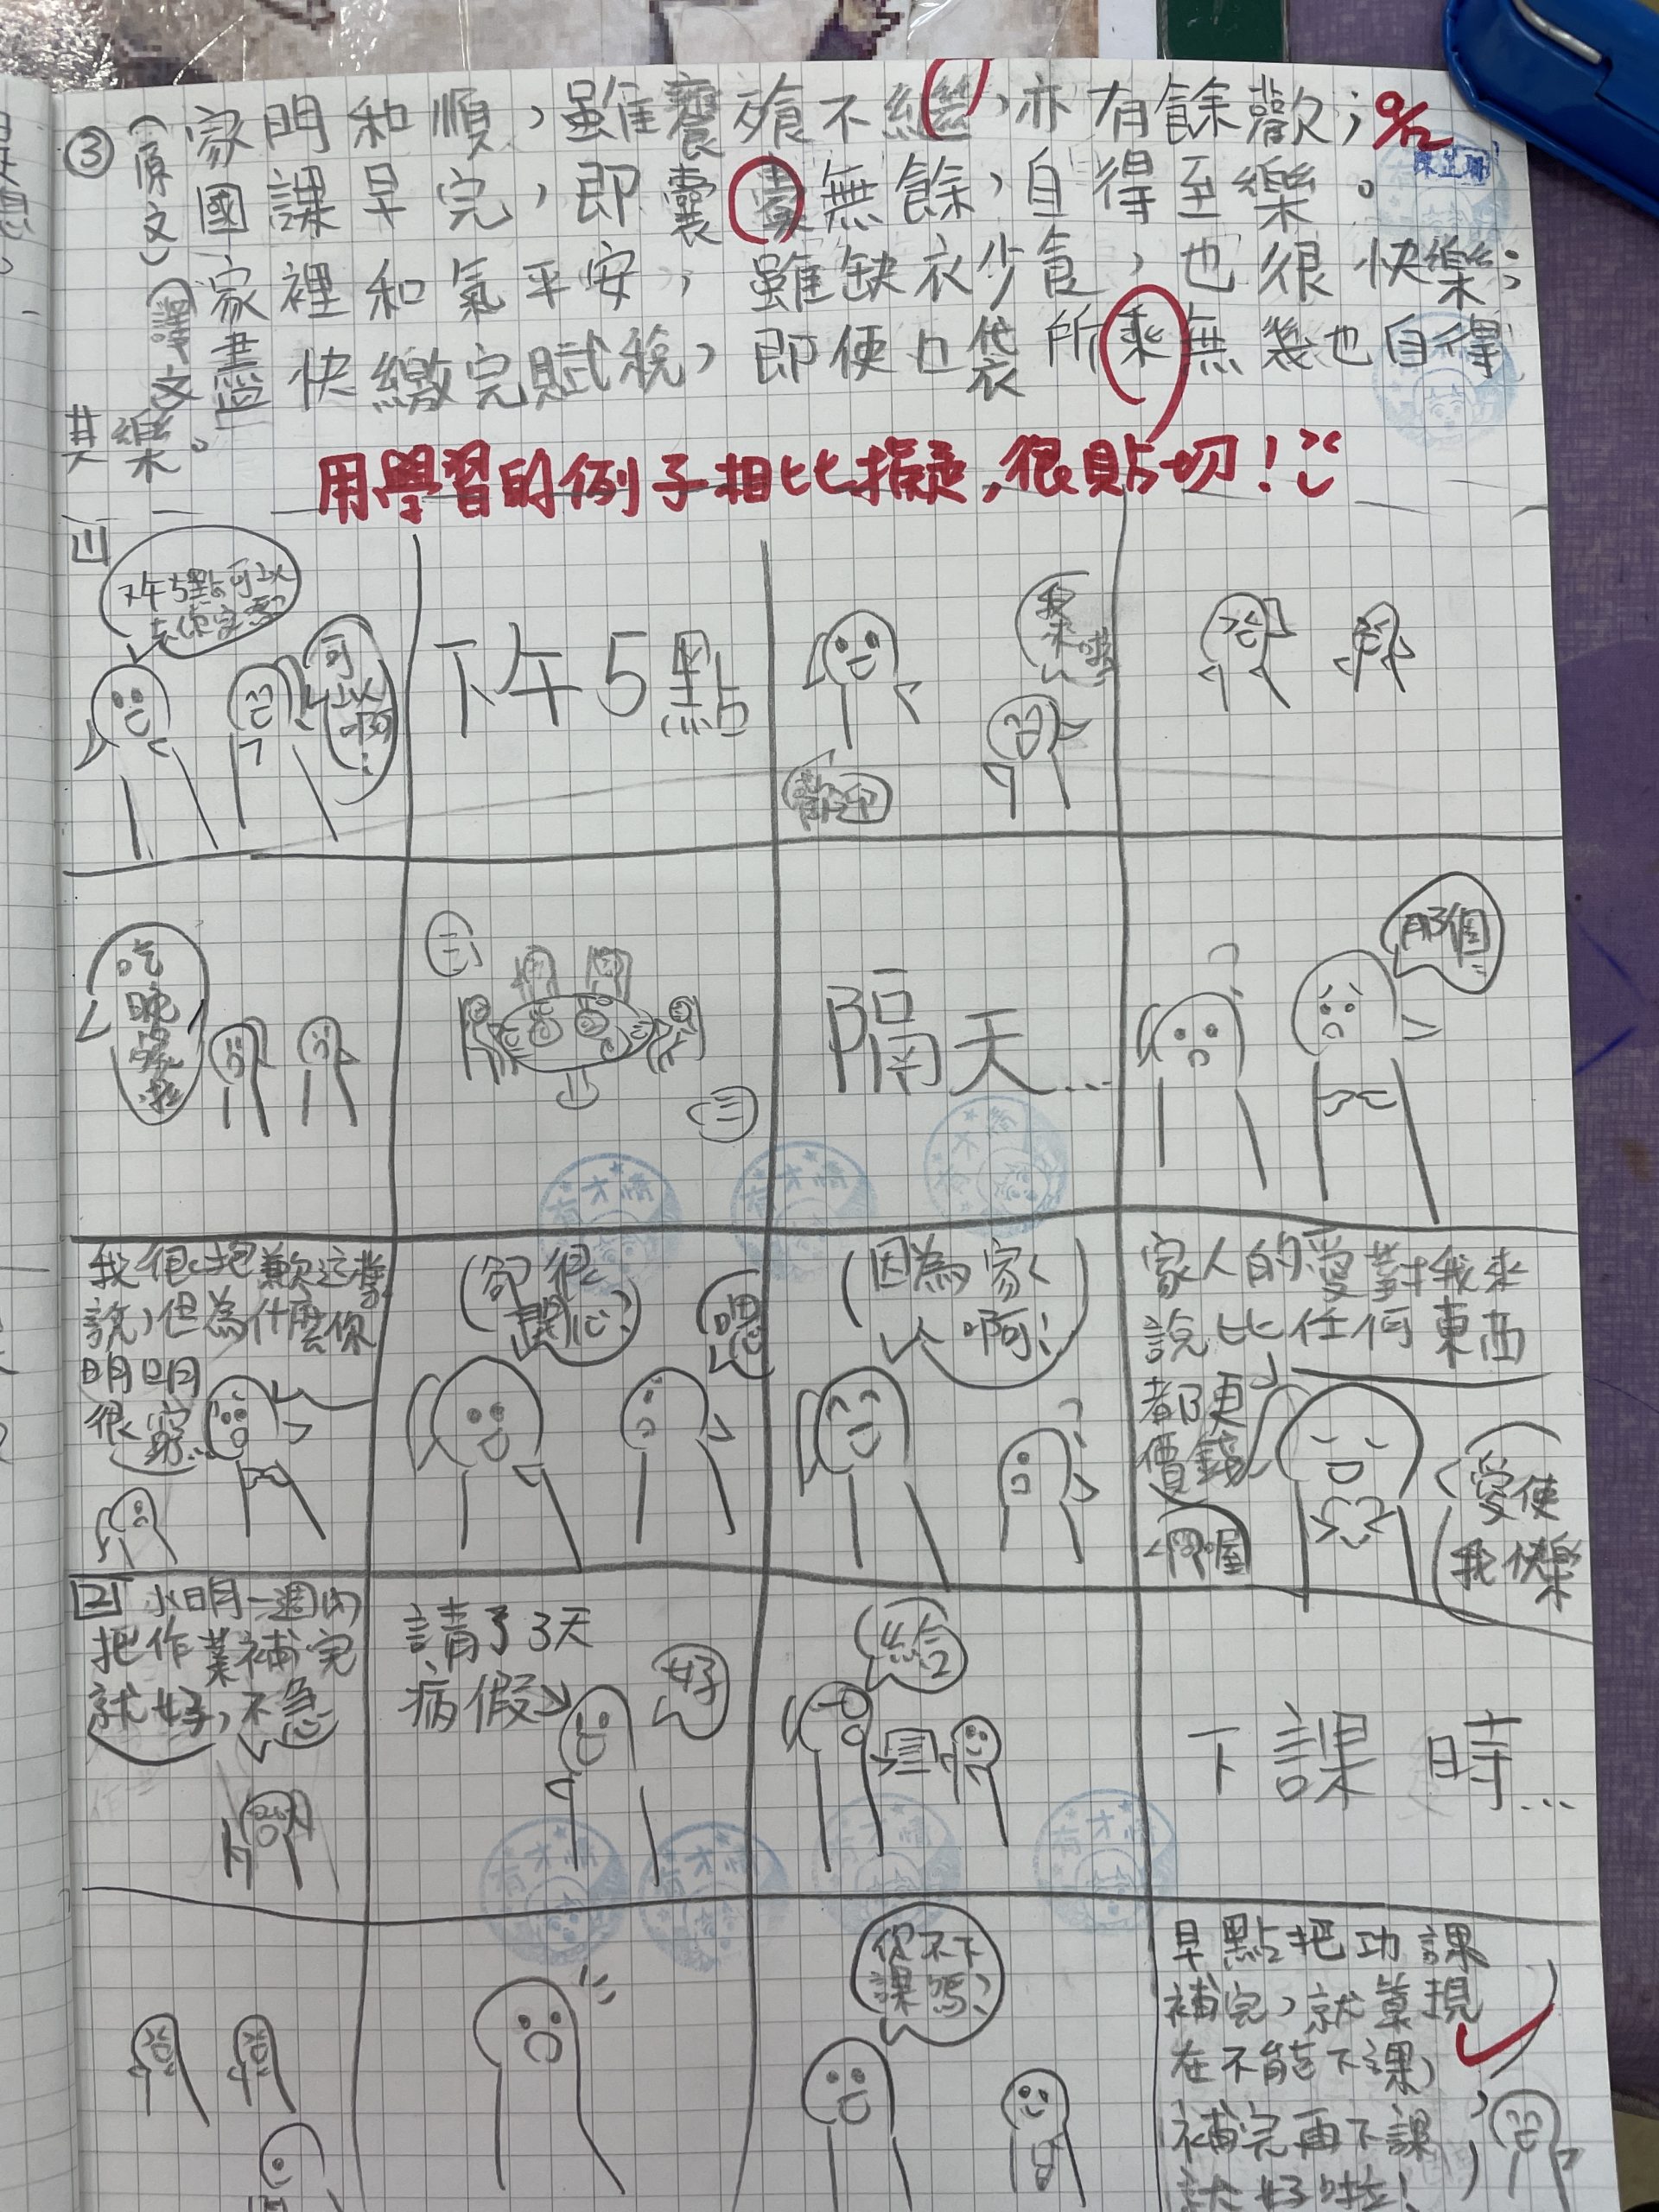 ③
(原文)
家門和順，雖饔飧不繼，亦有餘歡；
9/12
國課早完，即囊橐無餘，自得至樂。
(譯文)
家裡和氣平安，雖缺衣少食，也很快樂；
盡快繳完賦稅，即便口袋所乘無幾也自得
其樂。
用學習的例子相比擬，很貼切！
下午5點可以
可以啊！
下午5點
我來啦
歡迎
吃晚飯啦
隔天...
那個
我很抱歉這樣
說，但為什麼你
明明
很窮...
(卻很
開心?)
嗯
(因為家
人啊！)
家人的愛對我來
說比任何東西
都更
價錢
愛使
我快樂
2 小明一週內
把作業補完
就好，不急
請了3天
病假→
好
給
下課時...
你不下
課嗎？
早點把功課
補完，就算現
在不能下課，
補完再下課
就好啦！